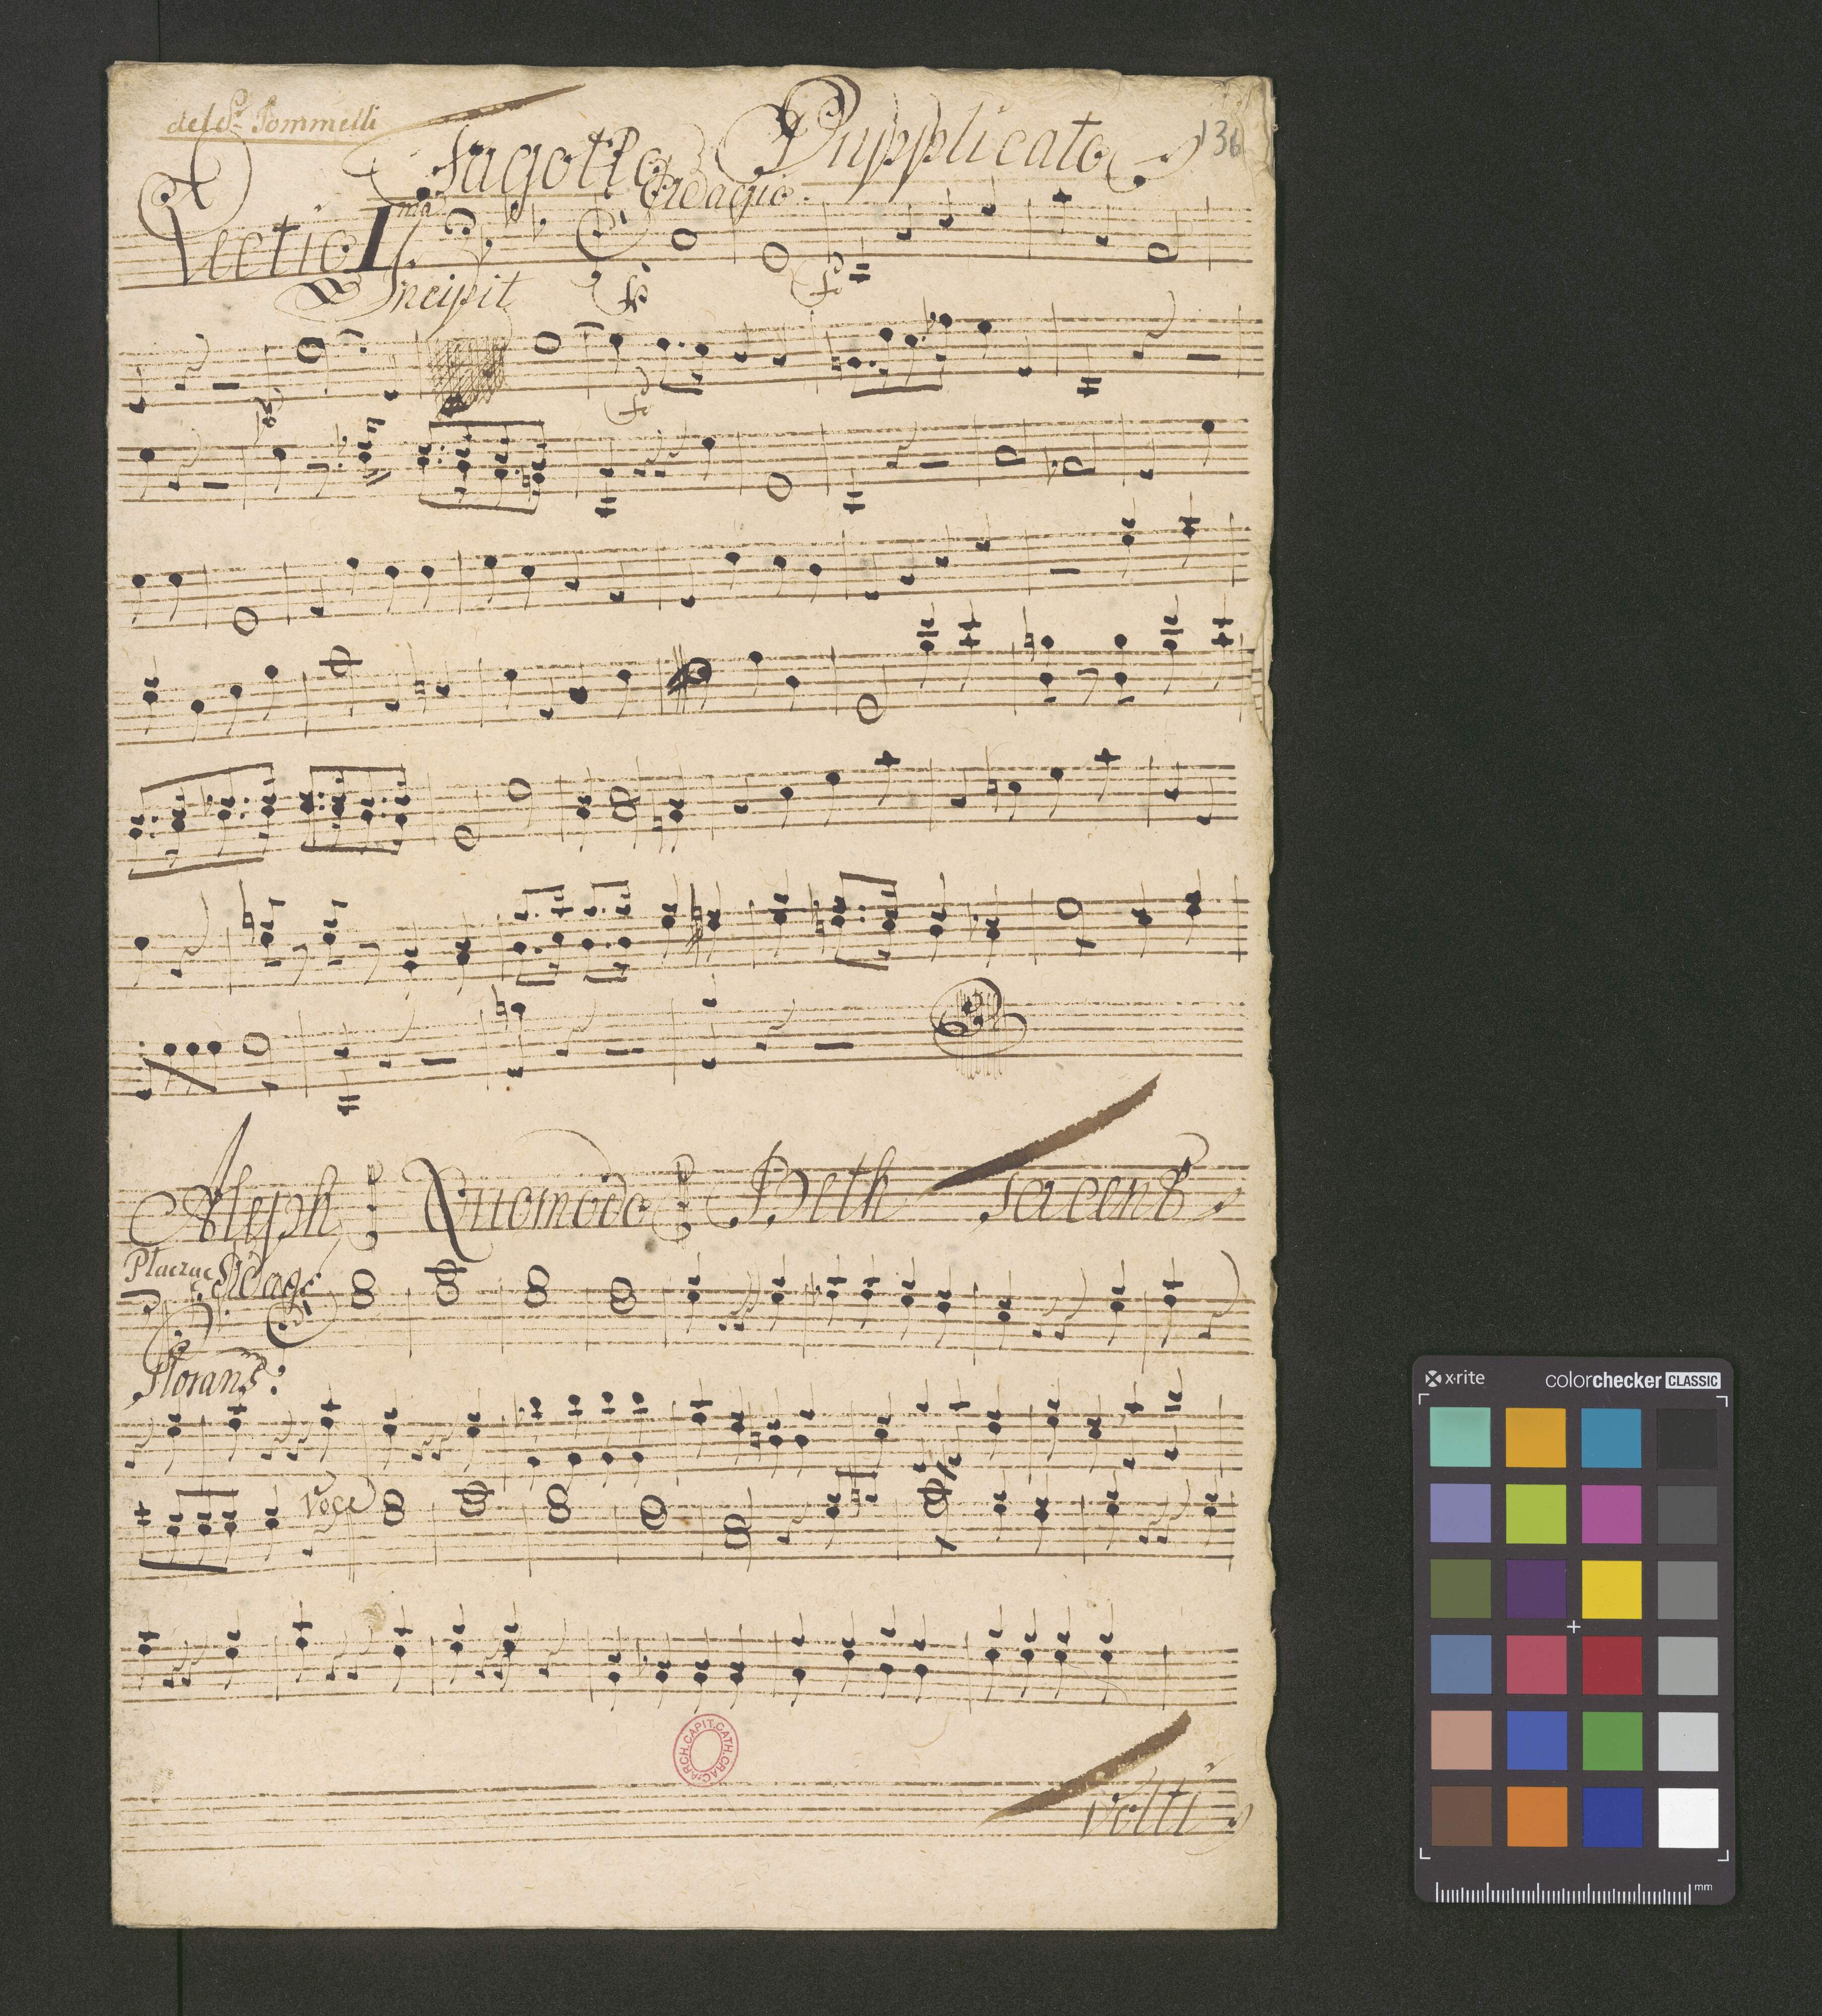 del Sr. Jommelli
Fagotto Dupplicato 136
Adagio.
Lectio I ma
Incipit
fo
fo
fo
Aleph Quomodo Beth tacent
Adag:
Plorans:
Voce
volti
ARCH. CAPIT. CATH. CRAC.
x-rite colorchecker CLASSIC
mm